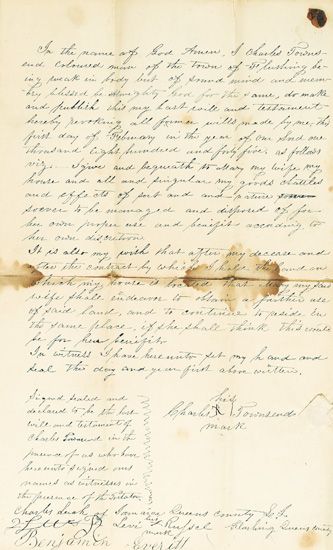 In the name of God Amen, I Charles Towns-
end Coloured man of the town of Flushing be-
ing weak in body but of sound mind and mem-
ory blessed be Almighty God for the same, do make
and publish this my last will and testament
hereby revoking all former wills made by me, this
first day of February in the year of our Lord one
thousand eight hundred and forty five as follows
viz. I give and bequeath to Mary my wife, my
house and all and singular my goods chattles
and effects of sort and and nature
soever to be managed and disposed of for
her own proper use and benefit according to
her own discretion
It is also my wish that after my decease and
after the contract by which I hold the land on
which my house is located that Mary my said
wife shall endeavor to obtain a further use
of said land, and to continue to reside in
the same place, if she shall think this would
be for her benefit.
In witness I have here unto set my hand and
seal this day and year first above written.
Signed sealed and
declared to be the last
will and testament of
Charles Townsend in the
presence of us who have
hereunto signed our
names as witnesses in
the presence of the Testator
his
Charles X Townsend
mark
Charles of Jamaica Queens County L. I.
Levi his Russel Flushing Queens
mark
Benjamin Everitt